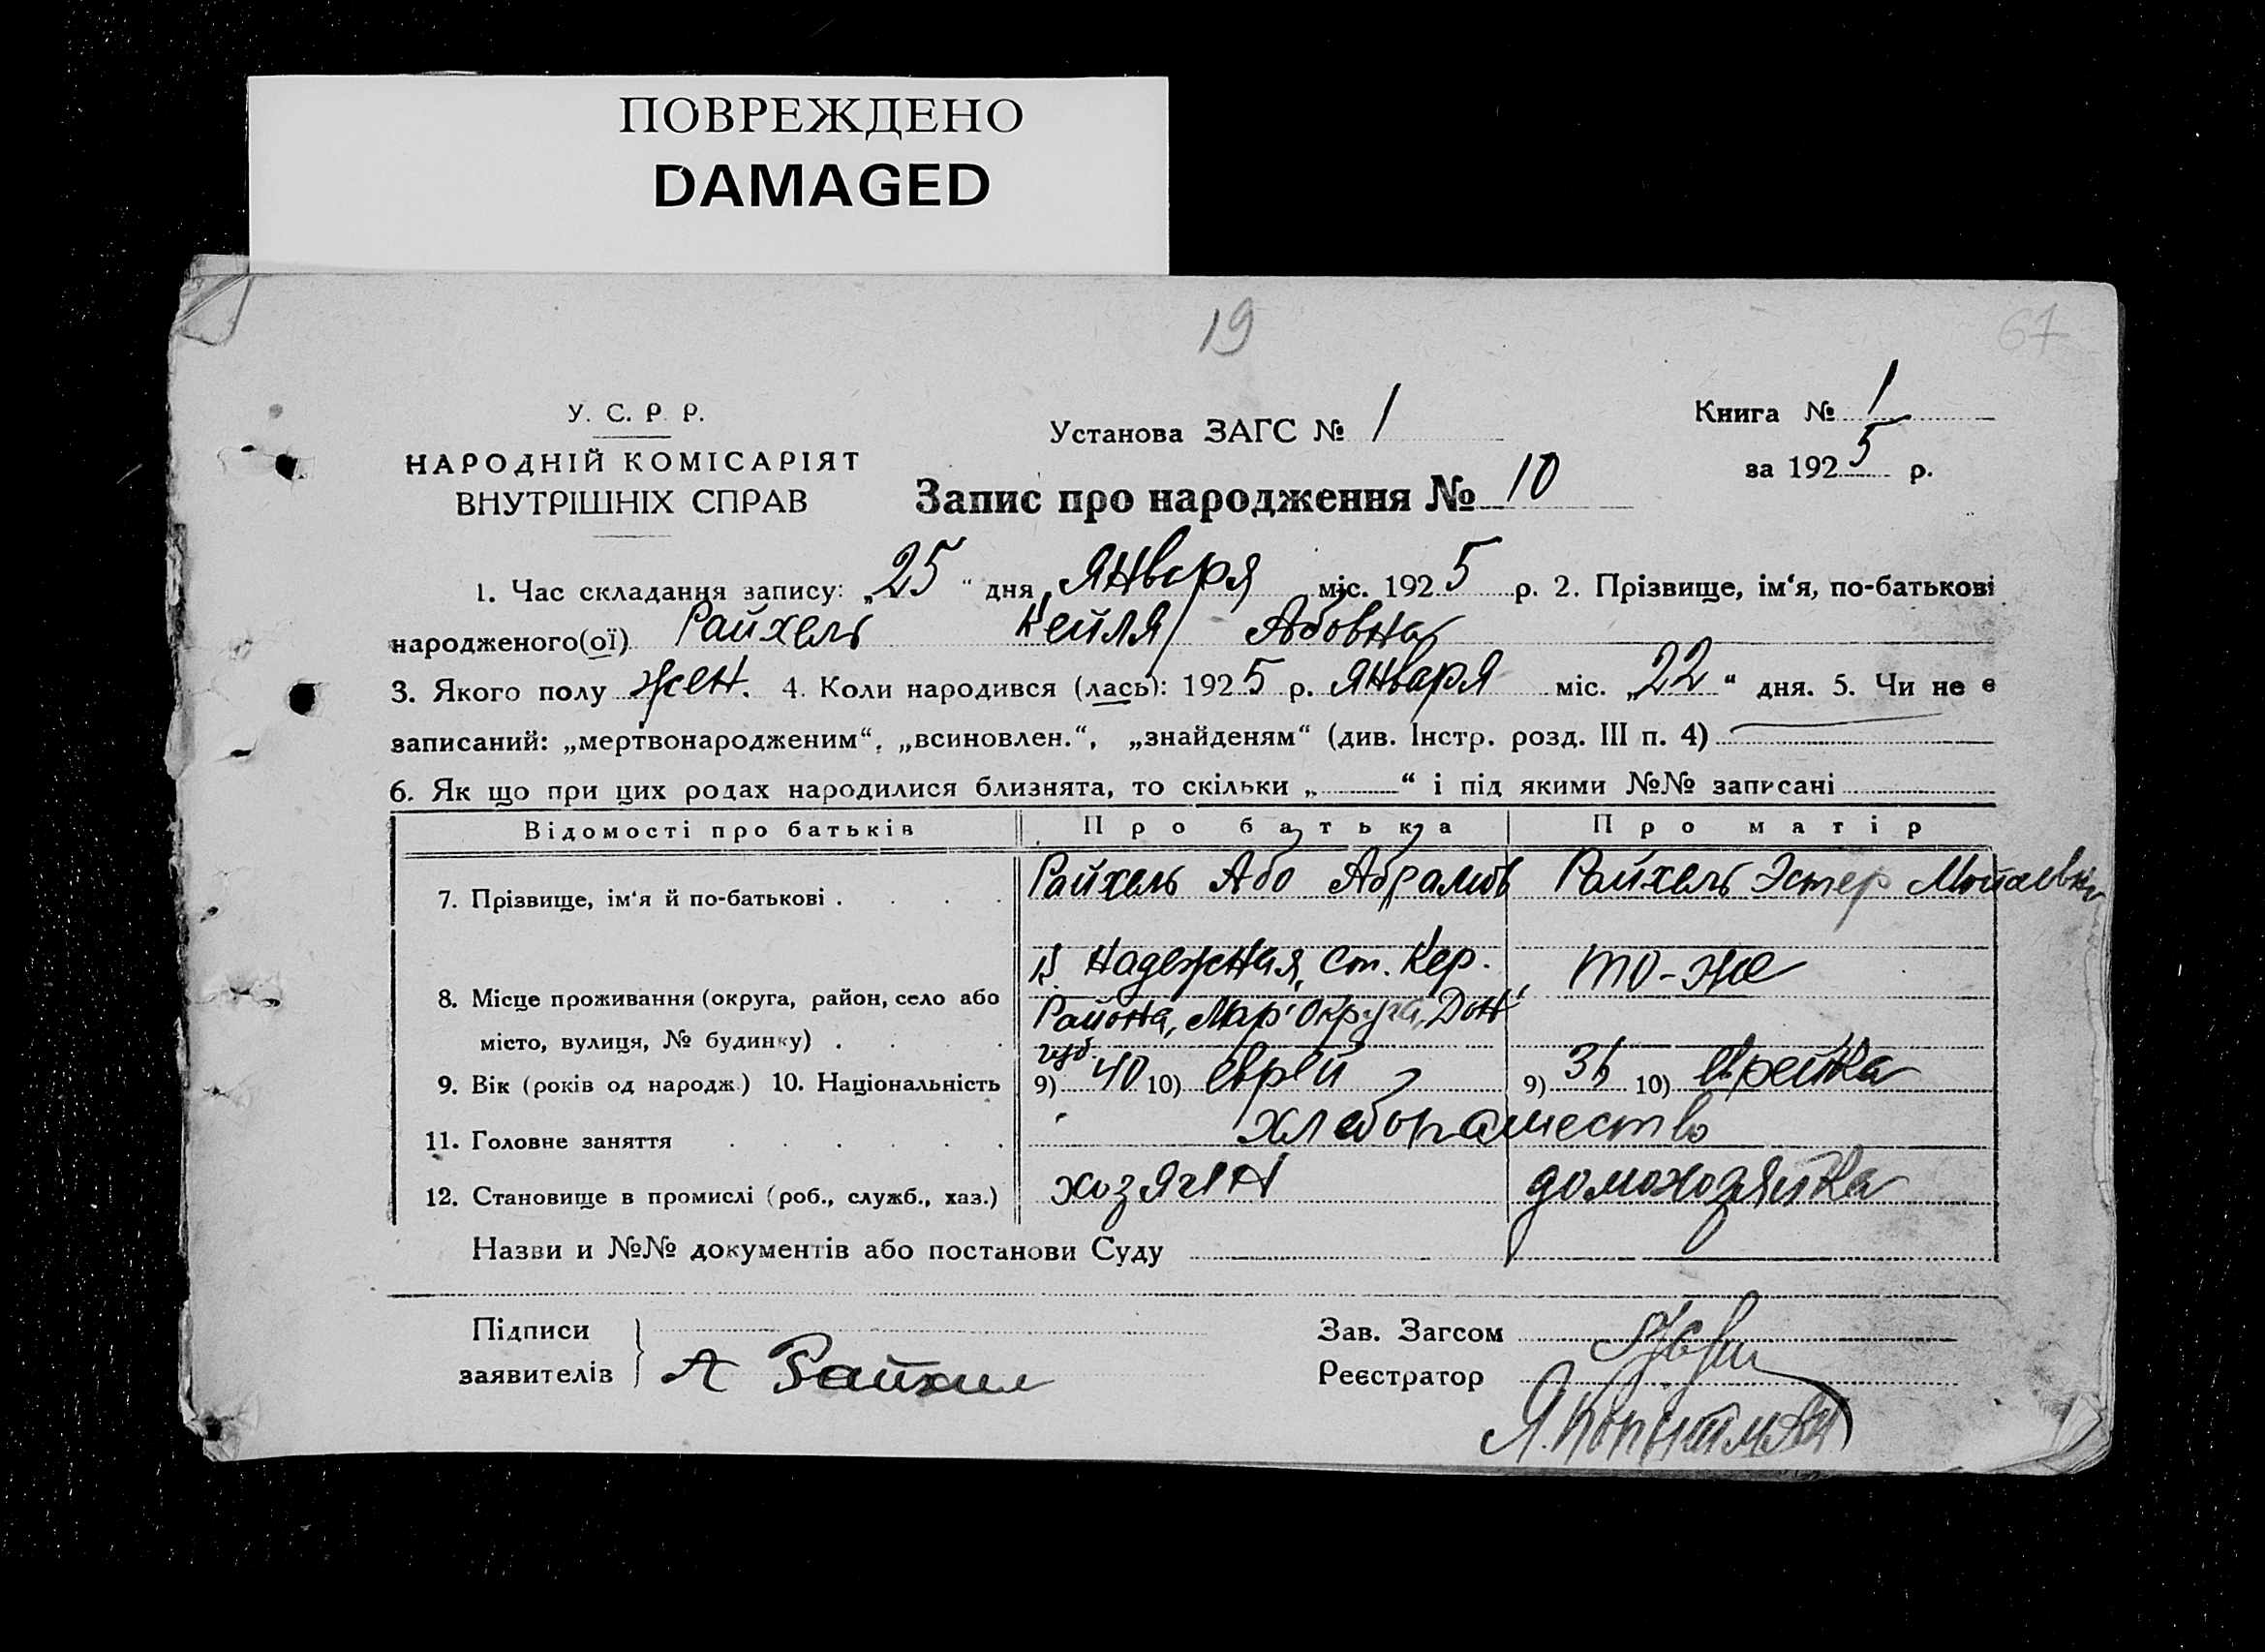 ПОВРЕЖДЕНО
DAMAGED
19
67
У. С. Р. Р.
НАРОДНІЙ КОМІСАРІЯТ
ВНУТРІШНІХ СПРАВ
Установа ЗАГС № 1
Книга № 1
за 1925 р.
Запис про народження № 10
1. Час складання запису: „25“ дня января міс. 1925 р. 2. Прізвище, ім‘я, по-батькові
народженого(ої) Райхель Кейля Абовна
3. Якого полу жен. 4. Коли народився (лась): 1925 р. января міс. „22“ дня. 5. Чи не є
записаний: „мертвонародженим“, „всиновлен.“, „знайденям“ (див. Інстр. розд. III п. 4)
6. Як що при цих родах народилися близнята, то скільки „ “ і під якими №№ записані
Відомості про батьків Про батька Про матір
7. Прізвище, ім‘я й по-батькові . Райхель Або Абрамов Райхель Эстер
8. Місце проживання (округа, район, село або місто, вулиця, № будинку) . К. Надежная, Ст. Кер. то-же
Района, Мар. Округа, Дон.
губ.
9. Вік (років од народж.) 10. Національність 9) 40 10) еврей 9) 36 10) еврейка
11. Головне заняття хлебопашество
12. Становище в промислі (роб., служб., хаз.) хозяин домохозяйка
Назви и №№ документів або постанови Суду
Підписи заявителів А Райхил
Зав. Загсом
Реєстратор